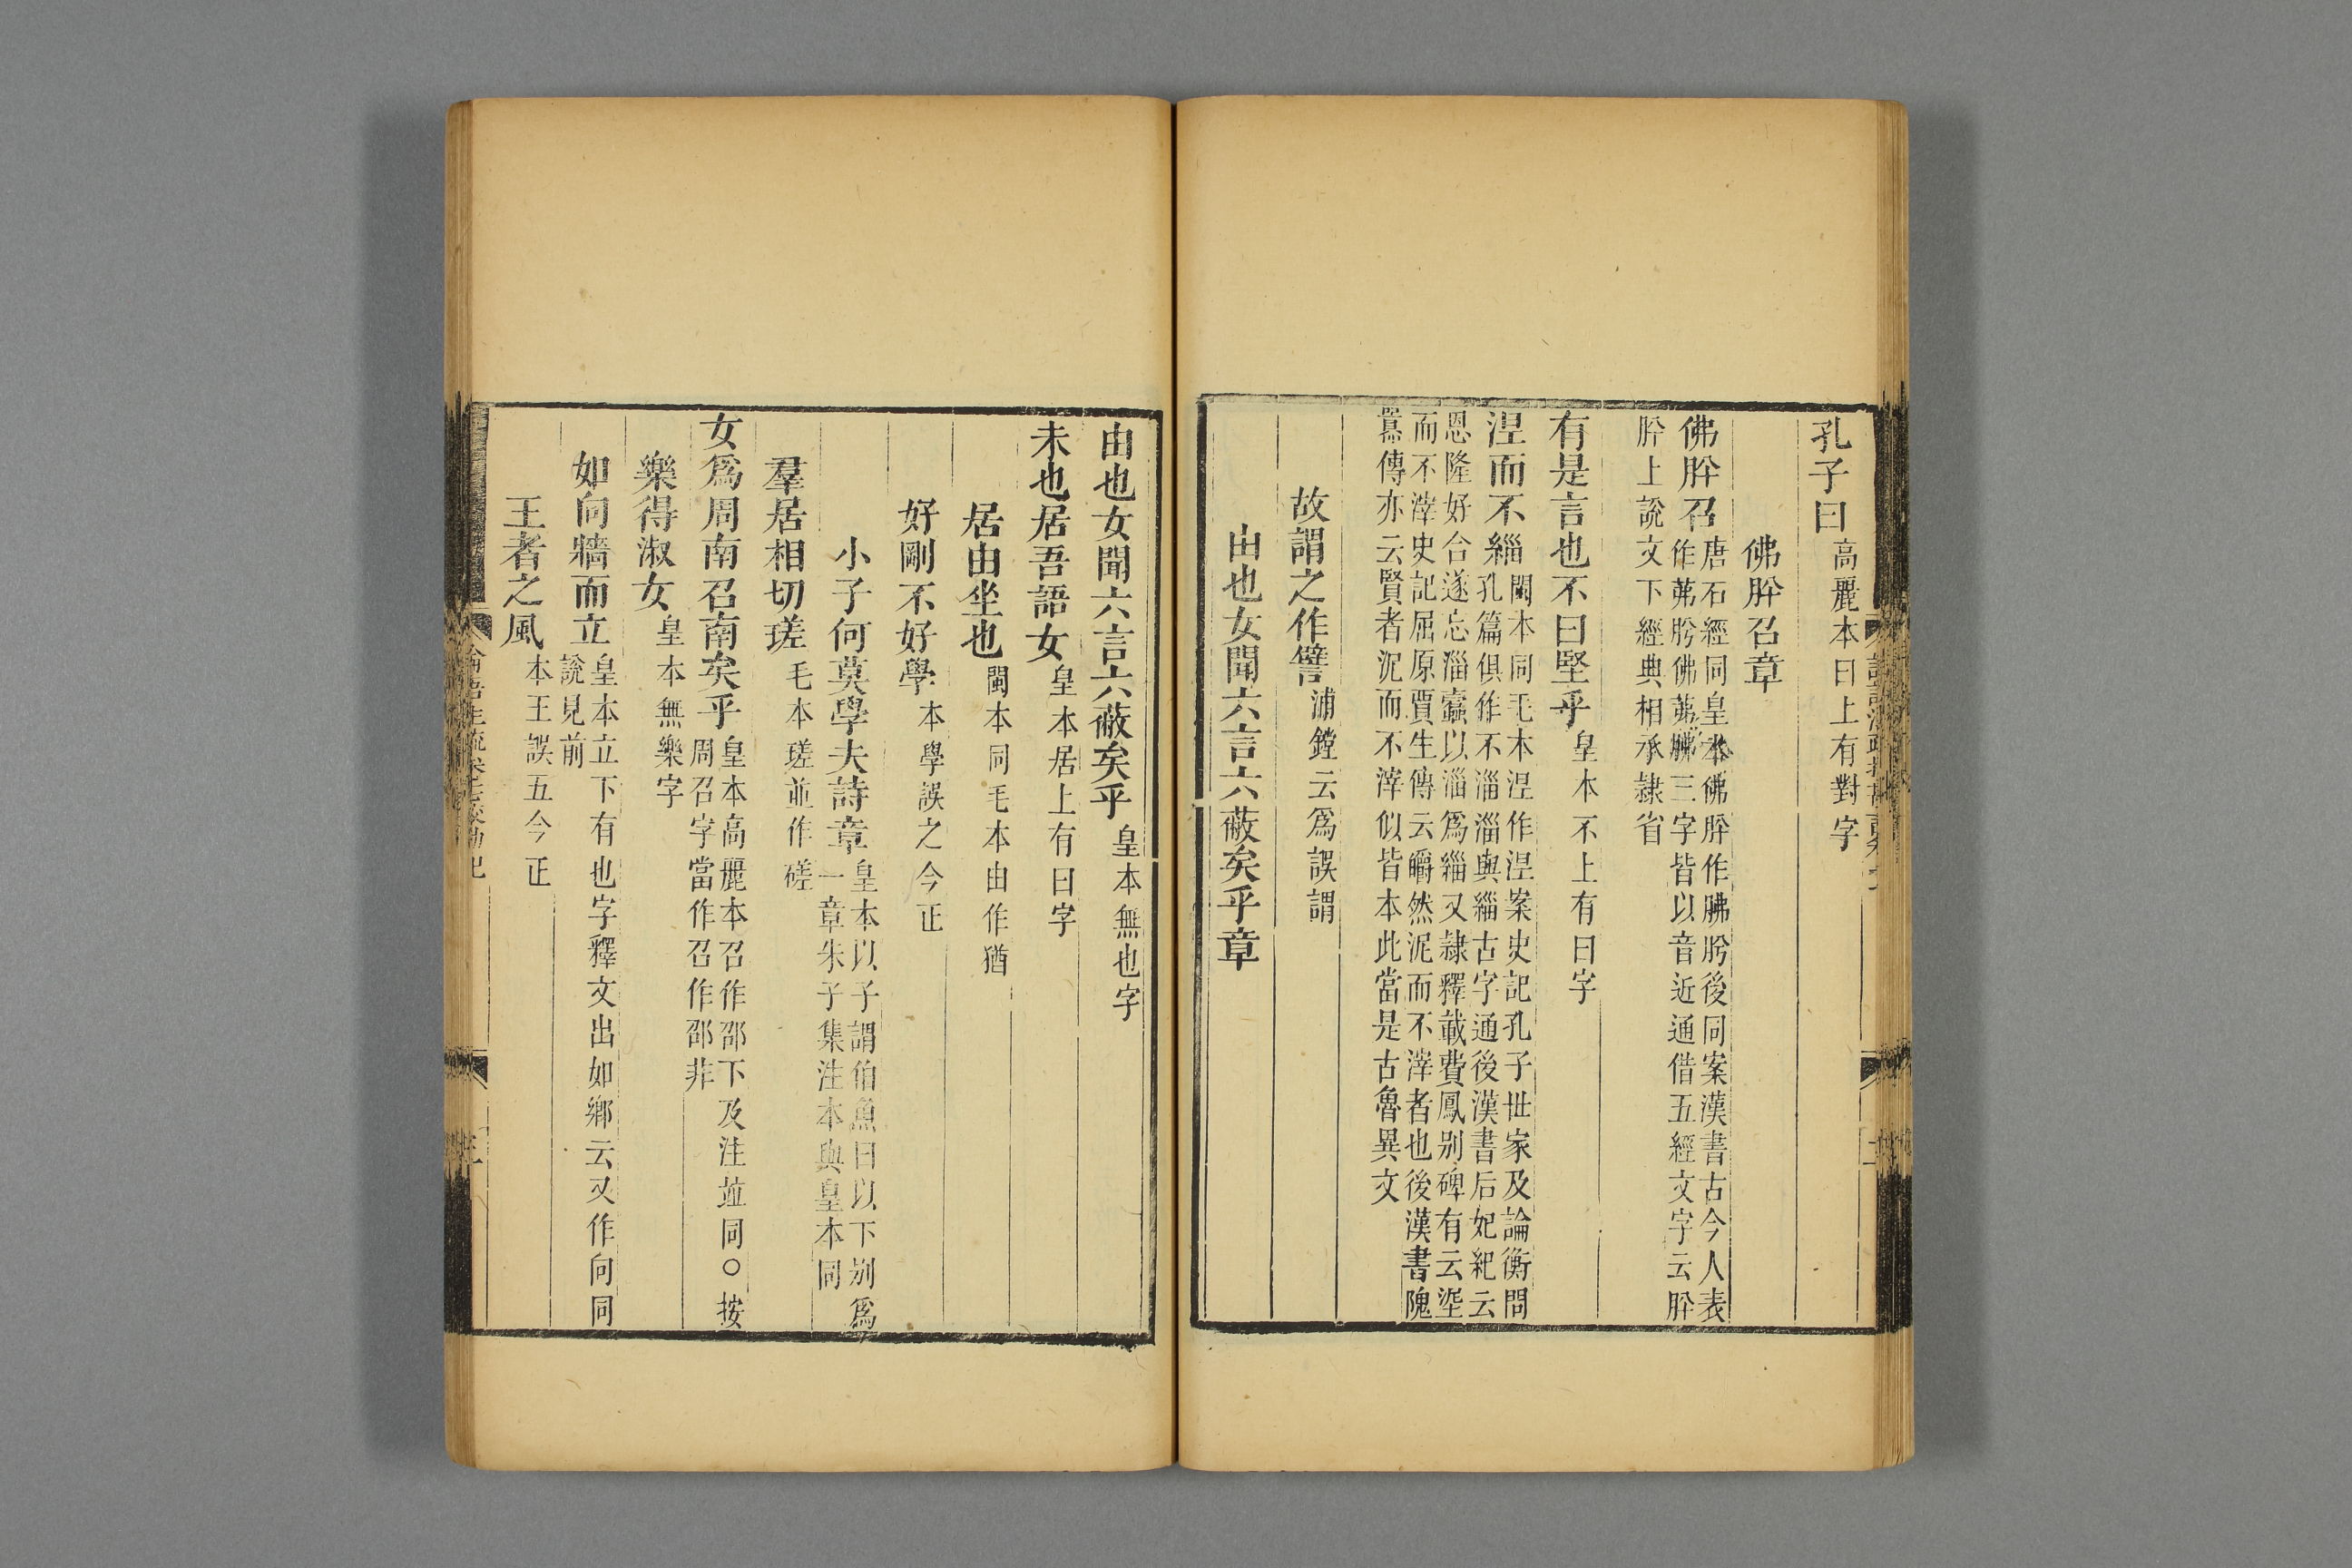 孔子曰高麗本曰上有對字
佛肸召章
佛肸召唐石經同皇本佛肸作胇肹後同案漢書古今人表
作茀肸佛茀胇三字皆以音近通借五經文字云肸
肸上說文下經典相承隸省
有是言也不曰堅乎皇本不上有曰字
涅而不緇閩本同毛本涅作湼案史記孔子世家及論衡問
孔篇俱作不淄淄與緇古字通後漢書后妃紀云
恩隆好合遂忘淄蠹以淄爲緇又隸釋載費鳳别碑有云埿
而不滓史記屈原賈生傳云皭然泥而不滓者也後漢書隗
囂傳亦云賢者泥而不滓似皆本此當是古魯異文
故謂之作譬浦鏜云爲誤謂
由也女聞六言六蔽矣乎章
由也女聞六言六蔽矣乎皇本無也字
未也居吾語女皇本居上有曰字
居由坐也閩本同毛本由作猶
好剛不好學本學誤之今正
小子何莫學夫詩章皇本以子謂伯魚曰以下别爲
一章朱子集注本與皇本同
羣居相切瑳毛本瑳並作磋
女爲周南召南矣乎皇本高麗本召作邵下及注並同○按
周召字當作召作邵非
樂得淑女皇本無樂字
如向牆而立皇本立下有也字釋文出如鄉云又作向同
說見前
王者之風本王誤五今正